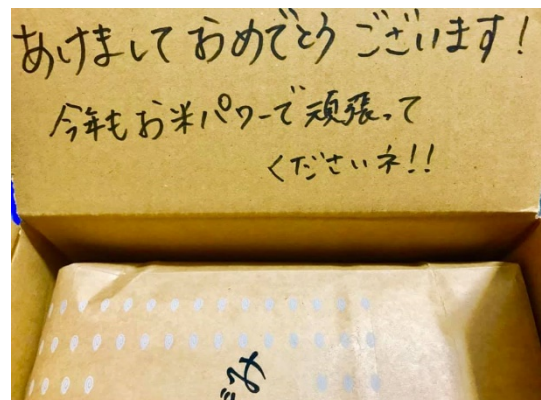 あけましておめでとうございます!
今年もお米パワーで頑張って
くださいネ!!